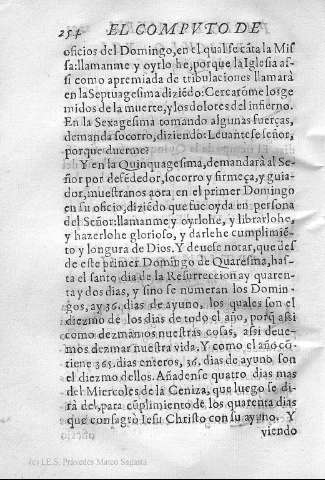 254 EL COMPVTO DE
oficios del Domingo, en el qual se cāta la Mis
sa: llamanme y oyrlo he, porque la Iglesia as-
si como apremiada de tribulaciones llamarà
en la Septuagesima diziēdo: Cercarōme los ge
midos de la muerte, y los dolores del infierno.
En la Sexagesima tomando algunas fuerças,
demanda socorro, diziendo: Leuante se señor,
porque duerme?
Y en la Quinquagesima, demandarà al Se-
ñor por defēdedor, socorro y firmeça, y guia-
dor, muestranos aora en el primer Domingo
en su oficio, diziēdo que fue oyda en persona
del Señor: llamanme y oyrlohe, y librarlohe,
y hazerlohe glorioso, y darlehe cumplimiē-
to y longura de Dios. Y deuese notar, que des
de este primer Domingo de Quaresima, has-
ta el santo dia de la Resurreccion ay quaren-
ta y dos dias, y sino se numeran los Domin-
gos, ay 36. dias de ayuno, los quales son el
diezmo de los dias de todo el año, porq̄ assi
como dezmamos nuestras cosas, assi deue-
mos dezmar nuestra vida. Y como el año cō-
tiene 365. dias enteros, 36. dias de ayuno son
el diezmo dellos. Añadense quatro dias mas
del Miercoles de la Ceniza, que luego se di-
rà del, para cūplimiento de los quarenta dias
que consagrò Iesu Christo con su ayuno. Y
viendo
(c) I.E.S. Práxedes Mateo Sagasta